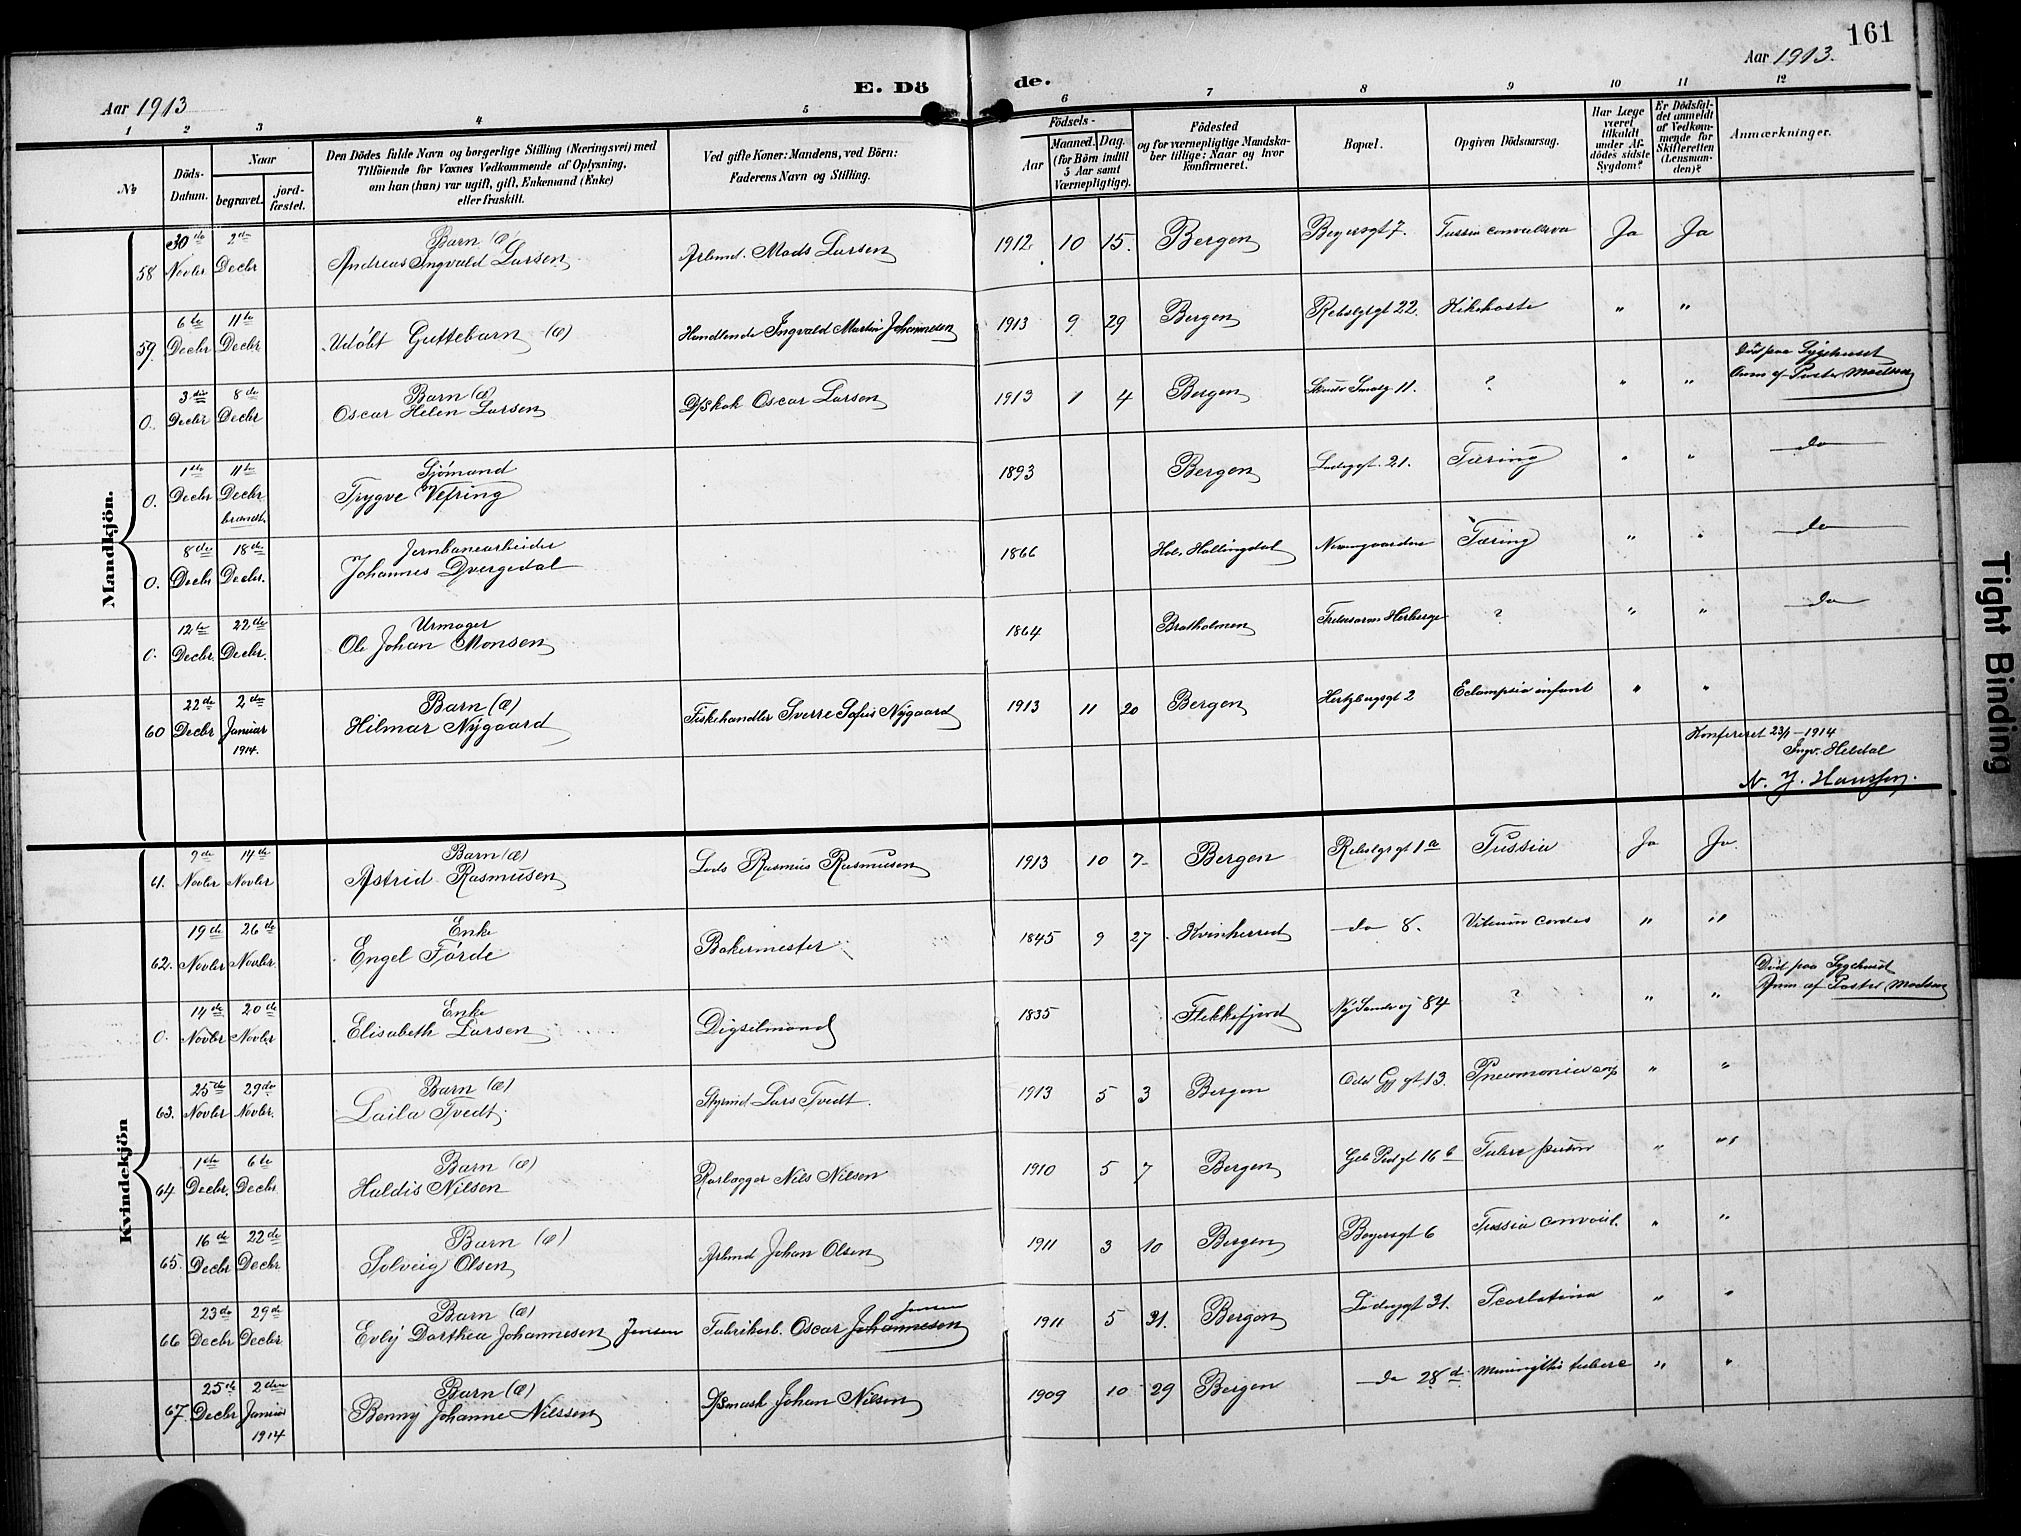 161
Aar 1913
E. Dö
de.
Aar 1913.
1 2 3 4 5 6 7 8 9 10 11 12
No
Döds-Datum.
Naar
begravet.
jord-fæstet.
Den Dödes fulde Navn og borgerlige Stilling (Næringsvei) med
Tilföiende for Voxnes Vedkommende af Oplysning,
om han (hun) var ugift, gift, Enkemand (Enke)
eller fraskilt.
Ved gifte Koner: Mandens, ved Börn:
Faderens Navn og Stilling.
Födsels-
Aar
Maaned. Dag.
(for Börn indtil
5 Aar samt
Værnepligtige).
Födested
og for værnepligtige Mandska-
ber tillige: Naar og hvor
konfirmeret.
Bopæl.
Opgiven Dödsaarsag.
Har Læge
været
tilkaldt
under Af-
dödes sidste
Sygdom?
Er Dödsfal-
det anmeldt
af Vedkom-
mende for
Skifteretten
(Lensman-
den)?
Anmærkninger.
Mandkjön.
58 30te Novbr 2den Decbr Barn (æ) Andreas Ingvald Larsen Arbmd. Mads Larsen 1912 10 15. Bergen Beyersgt 7. Tussis convulsiva Ja Ja
59. 6te Decbr 11te Decbr Udöbt Guttebarn (æ) Handlende Ingvald Martin Johannesen 1913 9 29 Bergen Rebslgt 22. Kikhoste " "
0. 3die Decbr 8de Decbr Barn (æ) Oscar Helen Larsen D/skok Oscar Larsen 1913 1 4 Bergen Smalg 11. ? " " Död paa Sygehuset Anm af Pastor Madsen
0. 1ste Decbr 11te Decbr brændt. Sjömand Trygve Vefring 1893 Bergen Ladegt. 21. Tæring " " do
0. 8de Decbr 18de Decbr. Jernbanearbeider Johannes Dvergedal 1866 Hol, Hallingdal Tæring " " do
0. 12te Decbr. 22de Decbr. Urmager Ole Johan Monsen 1864 Bratholmen Frelsesarm Herberge ? " " do
60 22de Decbr 2den Januar 1914. Barn (æ) Hilmar Nygaard Fiskehandler Sverre Sofus Nygaard 1913 11 20 Bergen Hertzbergsgt 2 Eclampsia infant " "
Konfereret 23/1-1914
Ingv. Heldal
N. J. Hanssen.
Kvindekjön
61. 9de Novbr 14de Novbr Barn (æ) Astrid Rasmusen Lods Rasmus Rasmusen 1913 10 7 Bergen Rebslgrgt 1a Tussis Ja Ja.
62. 19de Novbr 26de Novbr. Enke Engel Förde Bakermester 1845 9 27 Kvinherred do 8. Vitium cordis " "
0. 14de Novbr 20de Novbr. Enke Elisabeth Larsen Digselmand 1835 Flekkefjord Ny Sandvvj 84 ? " " Död paa Sygehuset Anm af Pastor Madsen
63. 25de Novbr 29de Novbr. Barn (æ) Laila Tvedt. Styrmd Lars Tvedt. 1913 5 3 Bergen Odd gt 13. Pneumonia " "
64 1ste Decbr. 6te Decbr Barn (æ) Haldis Nilsen Rørlægger Nils Nilsen 1910 5 7 Bergen 16b Tuberc " "
65. 16de Decbr 22de Decbr Barn (æ) Solveig Olsen Arbmd Johan Olsen 1911 3 10 Bergen Beyersgt 6 Tussis convul. " "
66 23de Decbr 29de Decbr. Barn (æ) Evly Dorthea Johannesen Jensen Fabrikarb. Oscar Johannesen Jensen 1911 5 31. Bergen Ladegt 31. Scarlatina " "
67. 25de Decbr 2den Januar 1914 Barn (æ) Benny Johanne Nilssen D/smask Johan Nilsen 1909 10 29 Bergen do 28d. Meningitis tuberc " "
Tight Binding